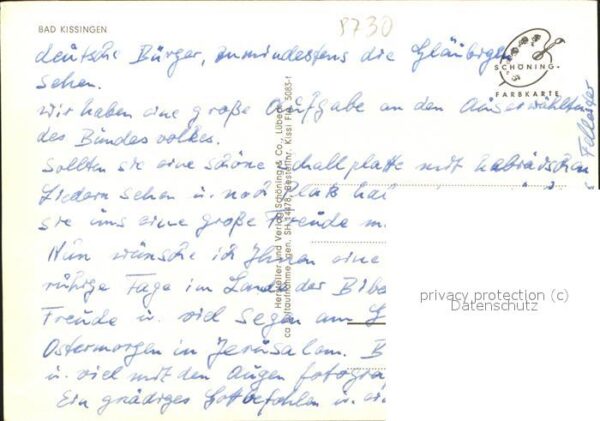 BAD KISSINGEN
8730
SCHÖNING
FARBKARTE
deutsche Bürger, zumindestens die Gläubigen
sehen.
Wir haben eine große Aufgabe an den Auserwählten
des Bundesvolkes.
Sollten sie eine schöne Schallplatte mit hebräischen
Liedern sehen u. noch Platz ha
sie uns eine große Freude m
Nun wünsche ich Ihnen eine
ruhige Tage im Lande der Bibe
Freude u. viel Segen am
Ostermorgen in Jerusalem. B
u. viel mit den Augen fotogra
Ein gnädiges Gottbefohlen u.
Hersteller und Verlag Schöning & Co., Lübeck
Luftaufnahme, gen. SH 14478, Bestellnr. Kissi Flz. 5083-f
privacy protection (c)
Datenschutz